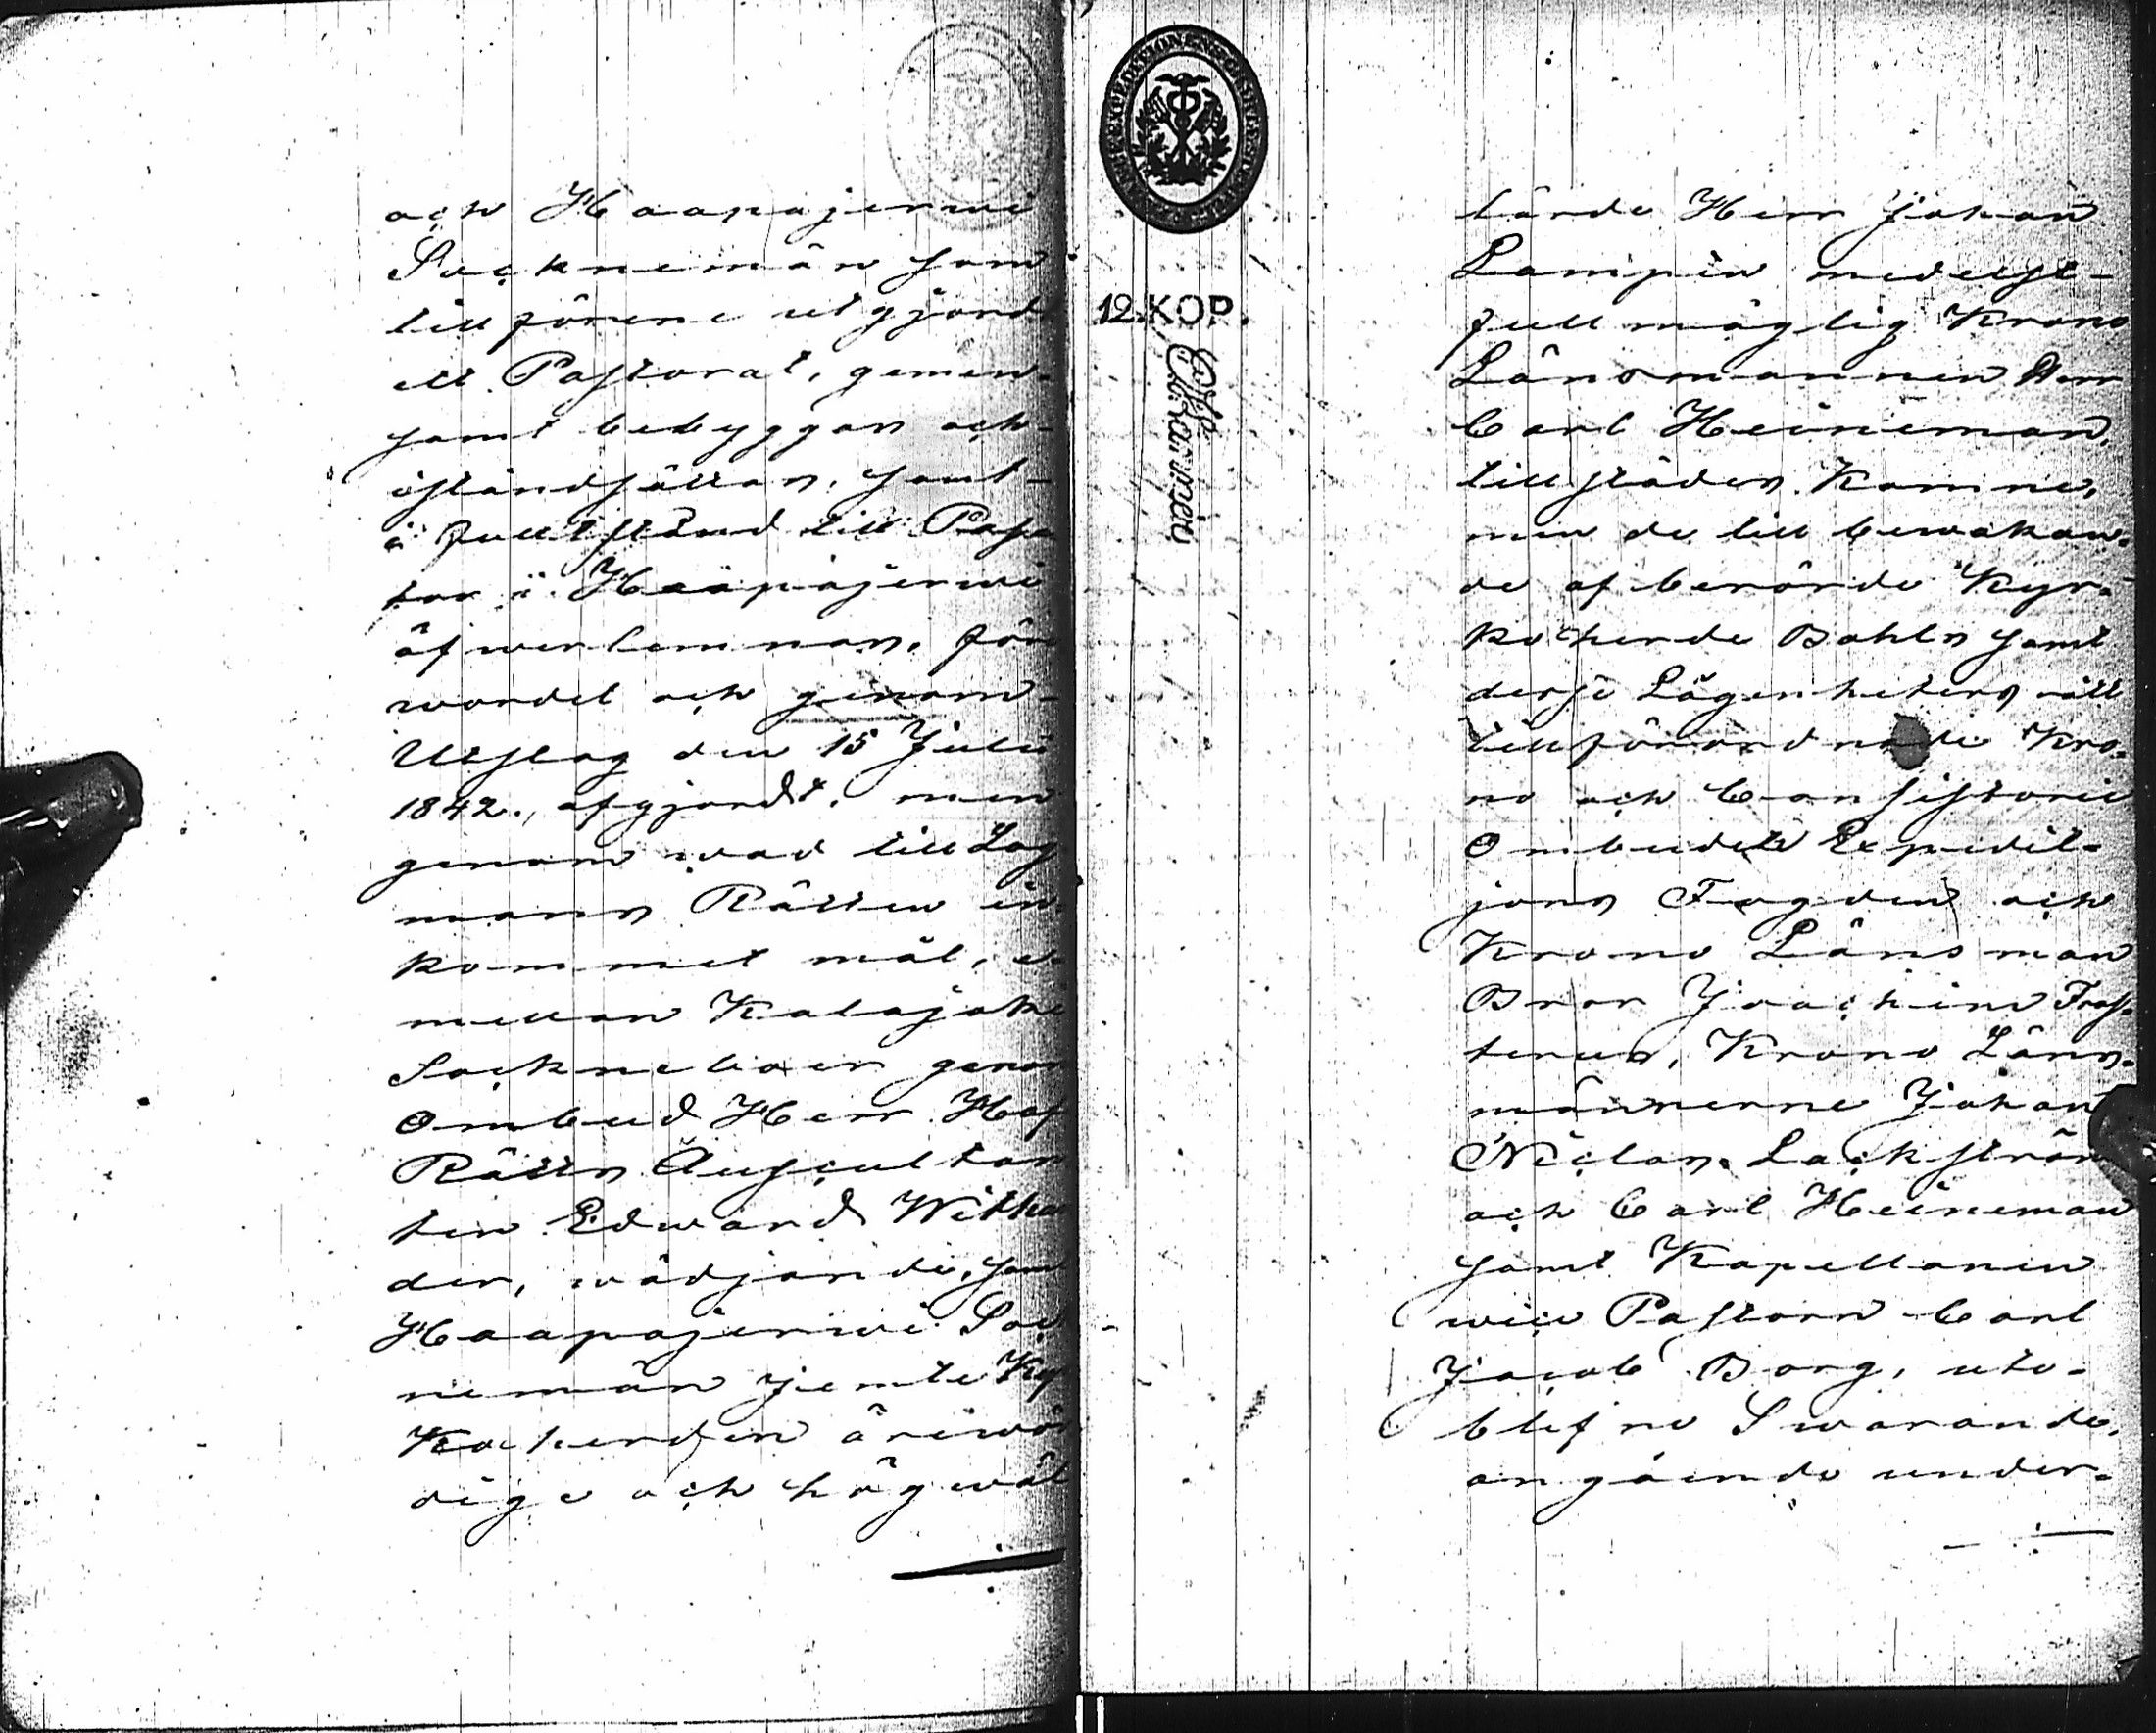 och Haapajerwi
Socknemän som
tillförene utgjord
ett Pastorat, gemen-
samt bebyggas och
iståndsättas, samt
i fullt stånd till Pas-
tor i Haapajerwi
öfwerlemnas, för
wordet och genom
Utslag den 15 Julii
1842., afgjordt, men
genom wad till Lag
mans Rätten in-
kommet mål, e-
mellan Kalajoki
Sockneboer genom
Ombud Herr Hof
Rätts Auscultan
ten Edward Withan
der, wädjande, samt
Haapajerwi Soc
nemän jemte Kyr
Koherden ärewör
dige och högwäl
12.KOP.
lärde Herr Johan
Lampén medelst
fullmägtig Krono
Länsmannen Herr
Carl Heineman,
tillstädes Komne,
men de till bewakan-
de af berörde Kyr-
koherde Bohls samt
dess Lägenheters rätt
tillförordnade Kro-
no och Consistorii
Ombuden Expedit-
jons Fogden och
Krono Länsman
Bror Joachim Fros-
terus, Krono Läns-
männerne Johan
Niclas Lackström
och Carl Heineman
samt Kapellanen
wice Pastorn Carl
Jacob Borg, ute-
blefne Swarande,
angående under-